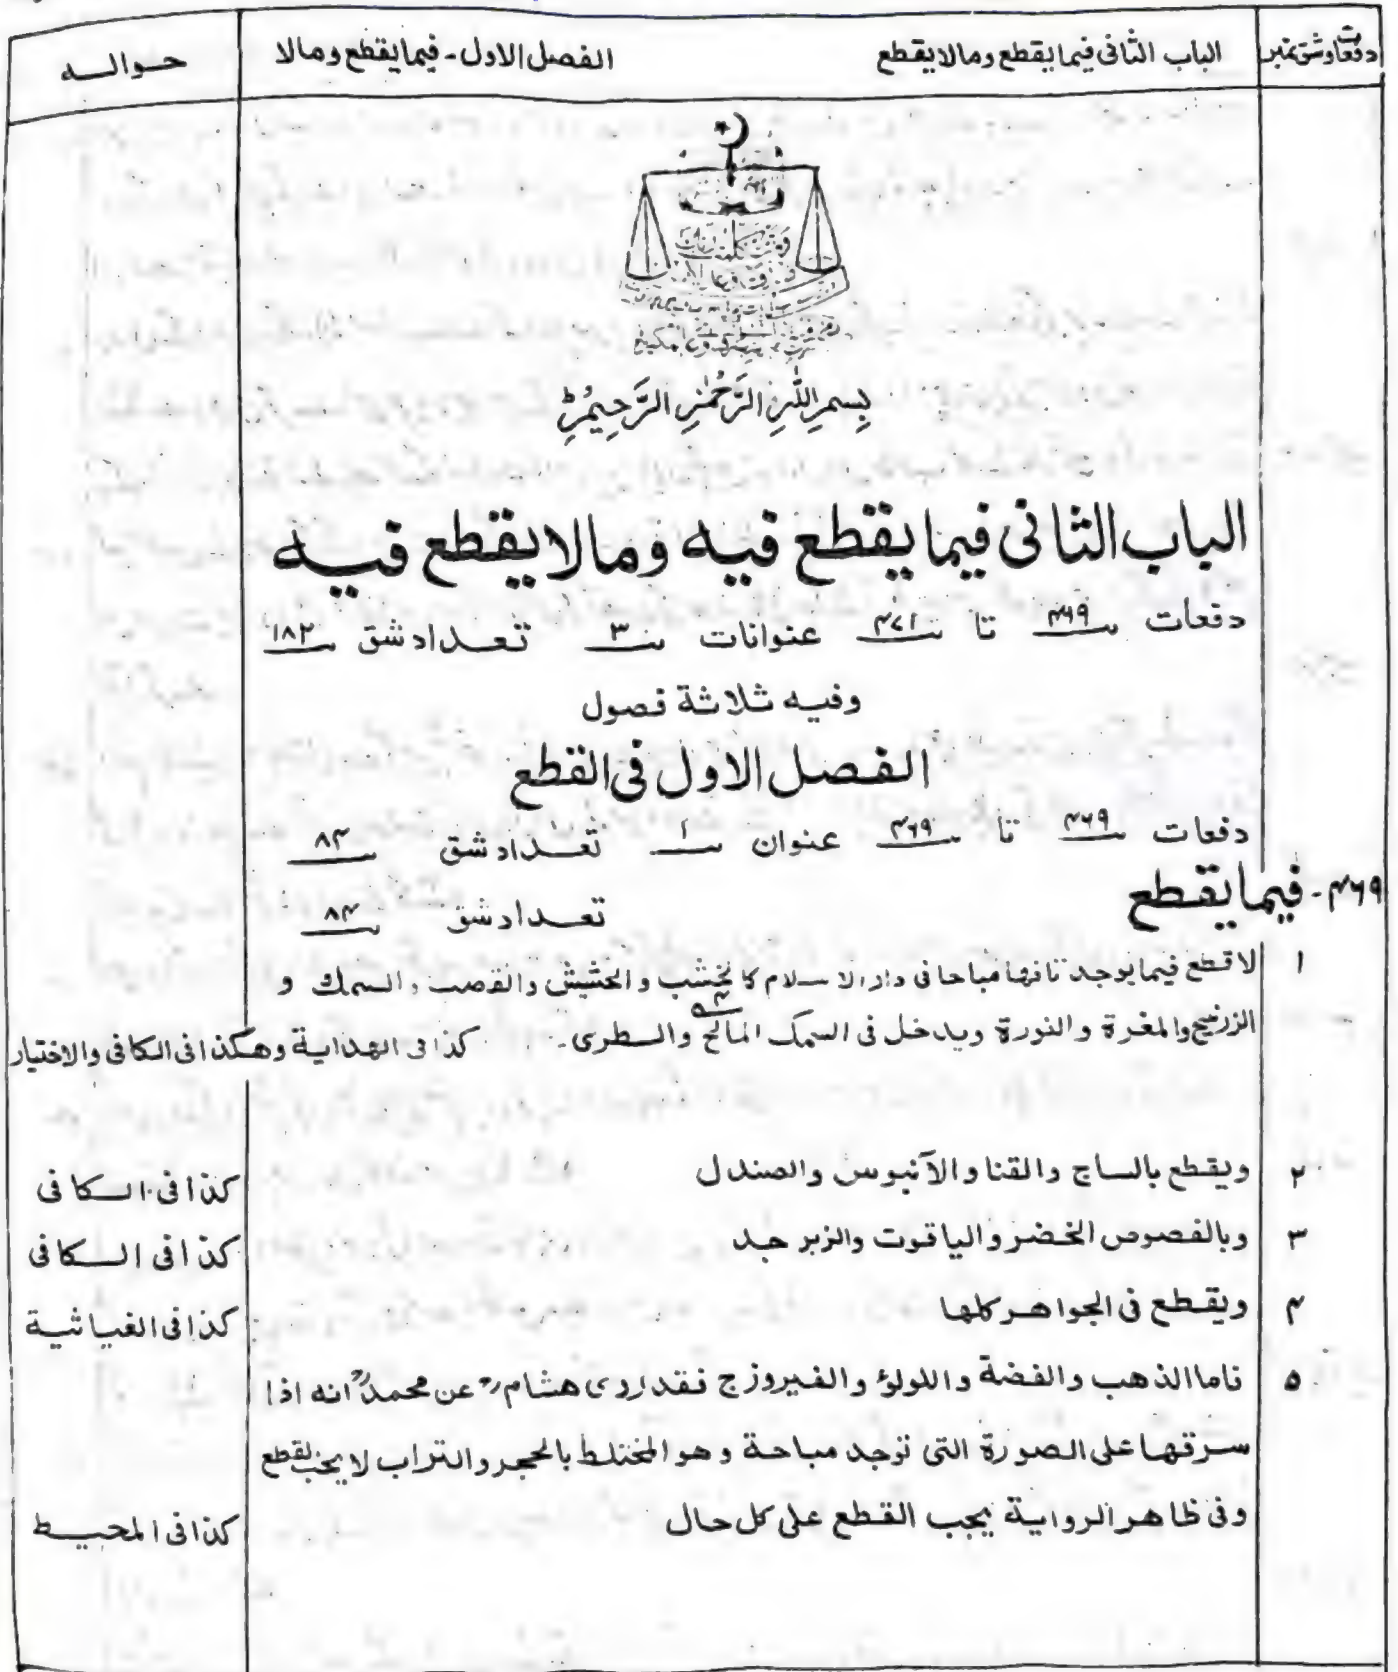 دفعات وشق نمبر
الباب الثانی فیما یقطع ومالا یقطع
الفصل الاول - فیما یقطع ومالا
حوالہ
بِسمِ اللّٰہِ الرَّحْمٰنِ الرَّحِیْمِ
الباب الثانی فیما یقطع فیہ ومالا یقطع فیہ
دفعات ۴۶۹ تا ۴۷۱ عنوانات ۳ تعداد شق ۱۸۳
وفیہ ثلاثة فصول
الفصل الاول فی القطع
دفعات ۴۶۹ تا ۴۶۹ عنوان ۱ تعداد شق ۸۴
۴۶۹ - فیما یقطع
تعداد شق ۸۴
۱ لا قطع فیما یوجد تافها مباحا فی دار الاسلام کالخشب والحشیش والقصب والسمک و
الزرنیخ والمغرة والنورة ویدخل فی السمک المالح والطری ۔ کذا فی الھدایة وھکذا فی الکافی والاختیار
۲ ویقطع بالساج والقنا والآنبوس والصندل کذا فی الکافی
۳ وبالفصوص الخضر والیاقوت والزبرجد کذا فی الکافی
۴ ویقطع فی الجواھر کلھا کذا فی الغیاثیة
۵ فاما الذھب والفضة واللولؤ والفیروزج فقد اروی ھشامؒ عن محمدؒ انہ اذا
سرقھا علی الصورة التی توجد مباحة وھو المختلط بالحجر والتراب لا یجب القطع
وفی ظاھر الروایة یجب القطع علی کل حال کذا فی المحیط